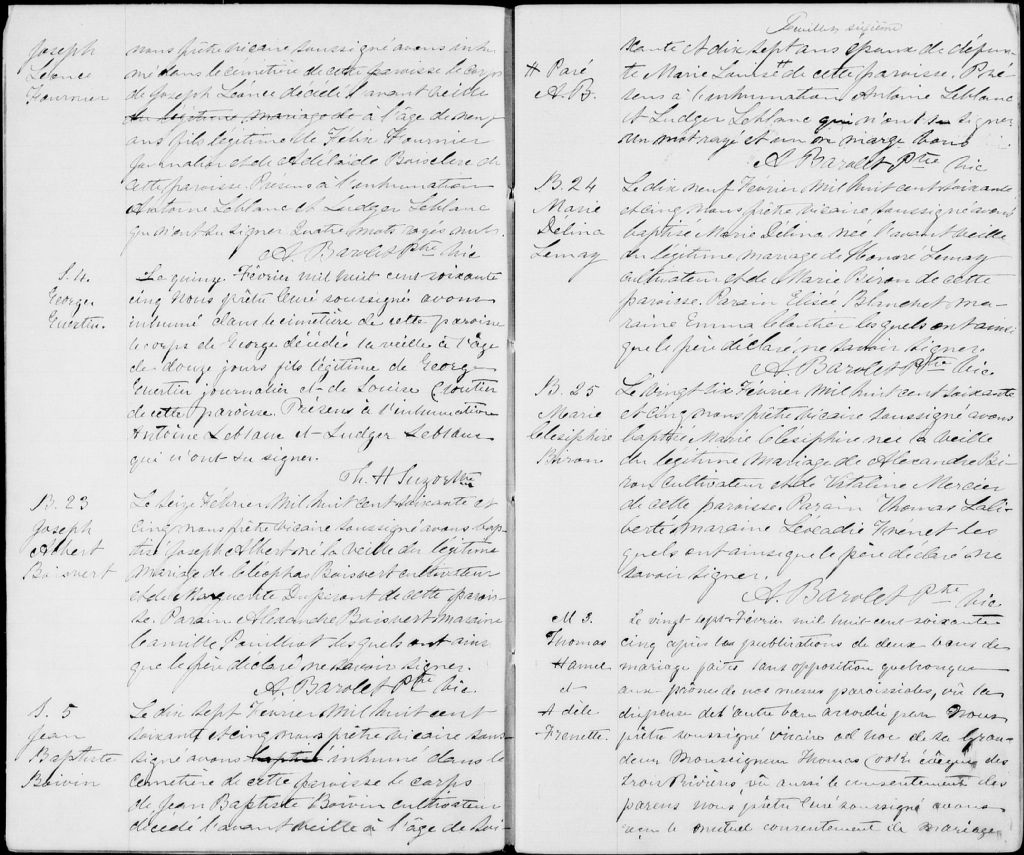 Joseph
Léonce
Fournier
nous prêtre vicaire soussigné avons inhu-
mé dans le cémetière de cette paroisse le corps
de Joseph Léonce decédé l'avant veille
du légitime mariage de à l'âge de neuf
ans fils légitime de Félix Fournier
journalier et de Adelaïde Bouclere de
cette paroisse. Présens à l'inhumation
Antoine Leblanc et Ludger Leblanc
qui n'ont su signer Quatre mots rayés nuls.
A. Barolet Ptre Vic
S. 4.
George
Guertin.
Le quinze Février mil huit cent soixante
cinq Nous prêtre Curé soussigné avons
inhumé dans le cimetière de cette paroisse
le corps de George décédé la veille à l'âge
de douze jours fils légitime de George
Guertin journalier et de Louise Cloutier
de cette paroisse. Présens à l'inhumation
Antoine Leblanc et Ludger Leblanc
qui n'ont su signer.
Th. H Suzor Ptre
B. 23
Joseph
Albert
Boisvert
Le seize Février Mil huit cent soixante et
cinq nous prêtre vicaire soussigné avons bap-
tisé Joseph Albert né la veille du légitime
mariage de Cléophas Boisvert cultivateur
et de Marguerite Duperont de cette parois-
se. Parain Alexandre Boisvert maraine
Camille Pouilliot lesquels ont ainsi
que le père déclaré ne savoir signer.
A. Barolet Ptre Vic.
S. 5
Jean
Baptiste
Boivin
Le dix sept Février Mil huit cent
soixante et cinq nous prêtre vicaire sous-
signé avons baptisé inhumé dans le
cemetière de cette paroisse le corps
de Jean Baptiste Boivin cultivateur
décédé l'avant veille à l'âge de soi-
Feuillet sixième
xante et dix sept ans epoux de défun-
te Marie Louise # de cette paroisse. Pré-
sens à l'inhumation Antoine Leblanc
et Ludger Leblanc qui n'ont su signer
Un mot rayé et un en marge bons
# Paré
A. B.
A. Barolet Ptre Vic
B. 24
Marie
Délina
Lemay
Le dix neuf Février Mil huit cent soixante
et cinq nous prêtre vicaire soussigné avons
baptisé Marie Délina née l'avant veille
du légitime mariage de Honoré Lemay
cultivateur et de Marie Biron de cette
paroisse. Parain Elisée Blanchet ma-
raine Emma Cloutier lesquels ont ainsi
que le père déclaré ne savoir signer.
A. Barolet Ptre Vic.
B. 25
Marie
Clésiphire
Biron
Le Vingt six Février Mil huit cent soixante
et cinq nous prêtre vicaire soussigné avons
baptisé Marie Clésiphire née la veille
du légitime mariage de Alexandre Bi-
ron cultivateur et de Vitaline Mercier
de cette paroisse. Parain Thomas Lali-
berté, maraine Léocadie Frénet les
quels ont ainsi que le père déclaré ne
savoir signer.
A. Barolet Ptre Vic
M 3.
Thomas
Hamel
et
Adèle
Frenette.
Le vingt sept Février mil huit cent soixante
cinq après la publications de deux bans de
mariage faites sans opposition quelconque
aux prônes de nos messes paroissiales, vû la
dispense de l'autre ban accordée par Nous
prêtre soussigné vicaire ad hoc de sa Gran-
deur Monseigneur Thomas Cooke évêque des
Trois Rivières vû aussi le consentement des
parens nous prêtre Curé soussigné avons
reçu le mutuel consentement de Mariage